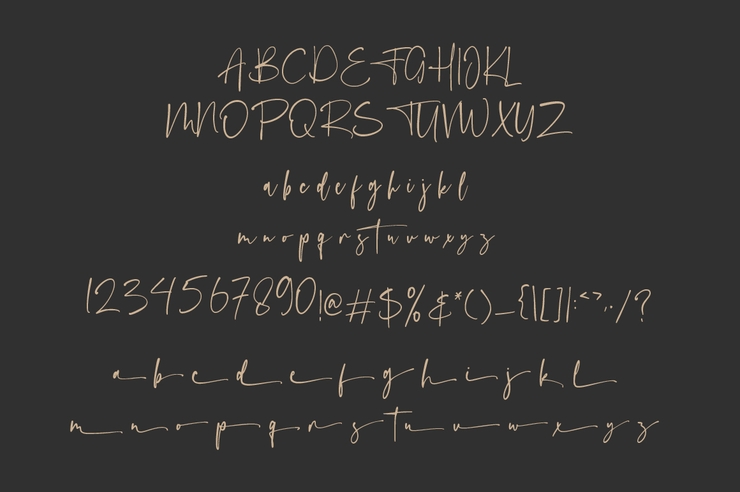 ABCDEFGHIJKL
MNOPQRSTUVWXYZ
abcdefghijkl
mnopqrstuvwxyz
1234567890!@#$%&*()_{|[]|:<>,./?
abcdefghijkl
mnopqrstuvwxyz